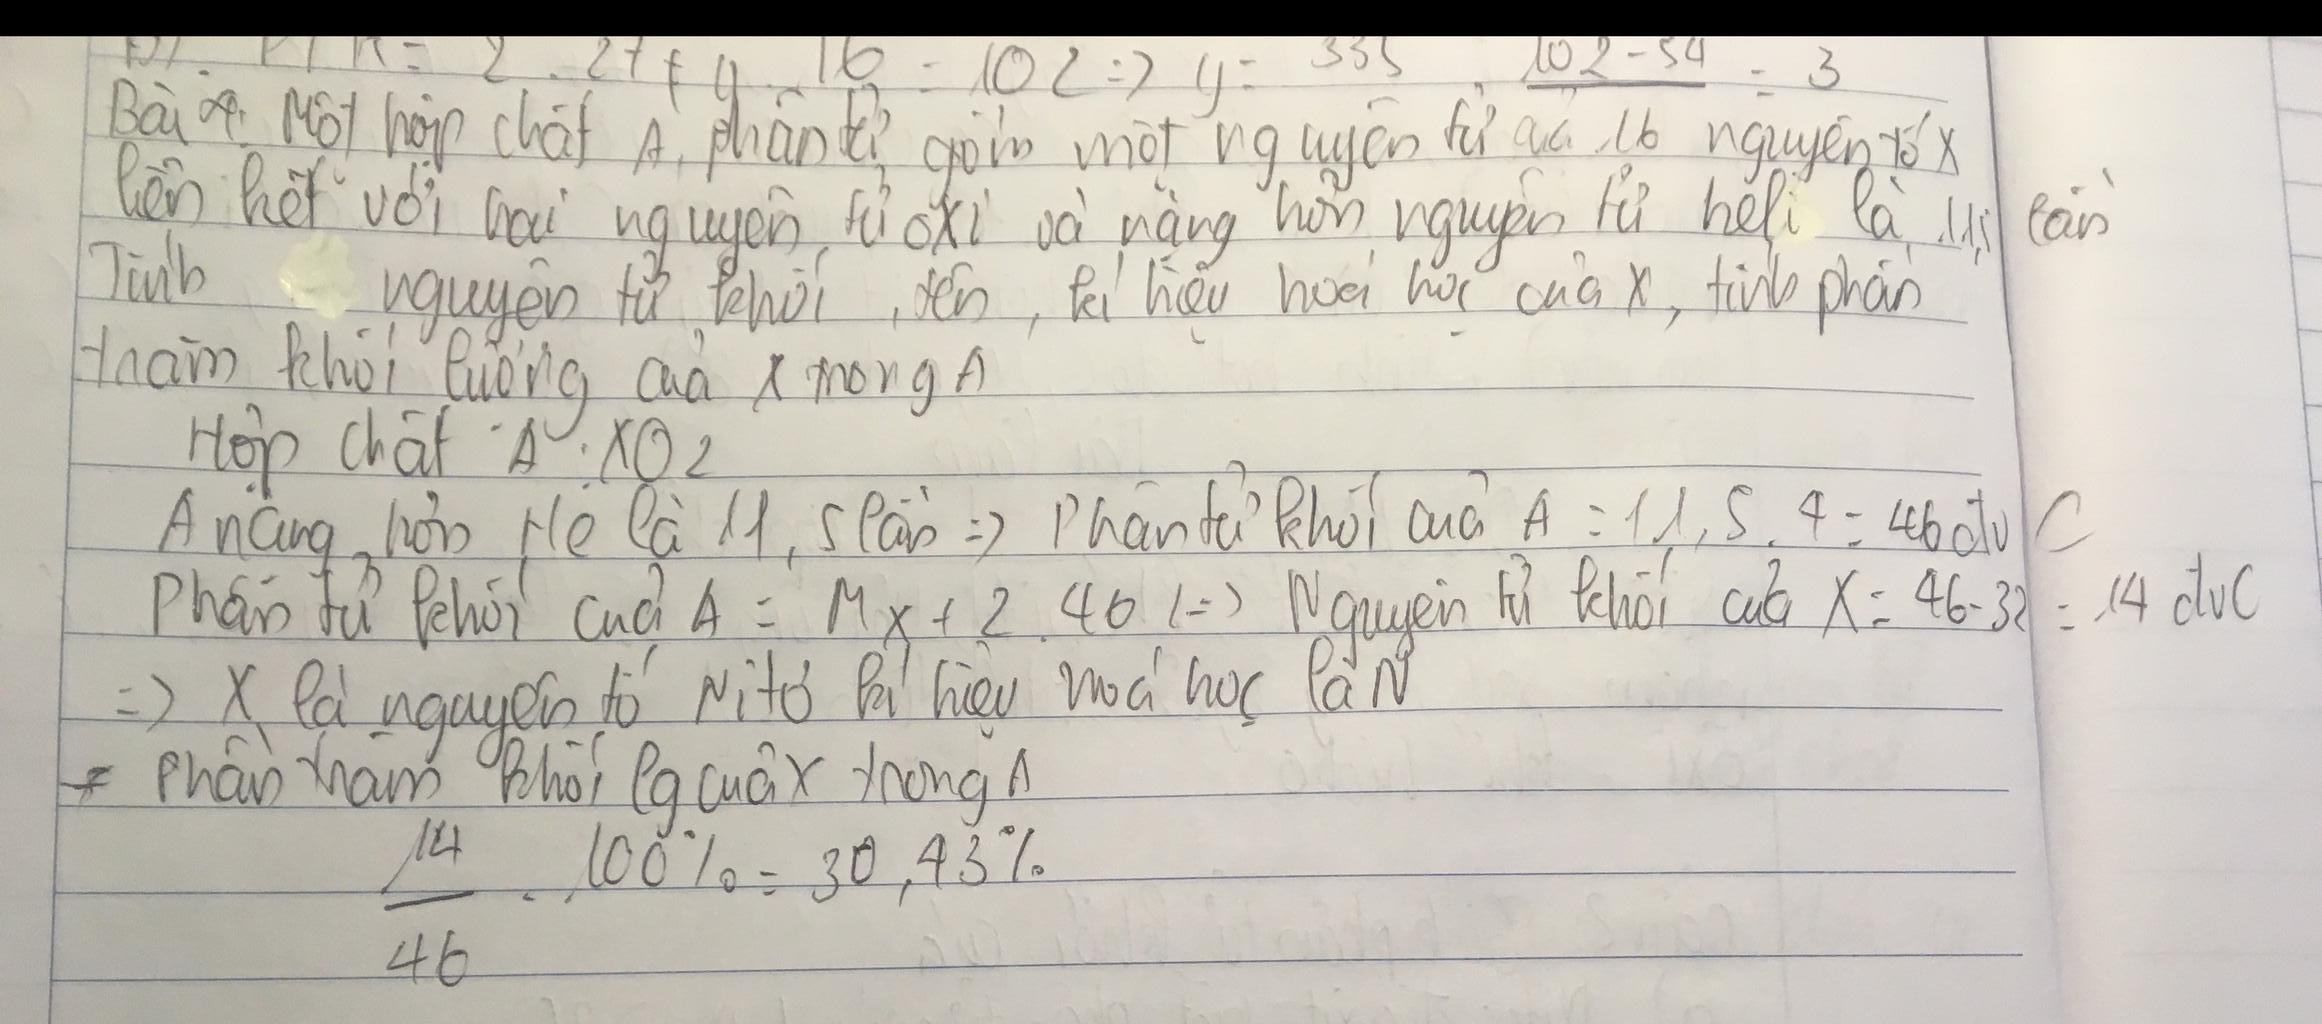 PTK = 2 . 27 + y . 16 = 102 => y = 335 . 102 - 54 = 3
Bài 4. Một hợp chất A, phân tử gồm một nguyên tử củ 16 nguyên tố X
liên kết với hai nguyên tử oxi và nặng hơn nguyên tử heli là 11,5 lần
Tính nguyên tử khối, tên, kí hiệu hoá học của X, tính phần
trăm khối lượng của X trong A
Hợp chất A : XO2
A nặng hơn He là 11,5 lần => Phân tử khối của A = 11,5 . 4 = 46 đvC
Phân tử khối của A = Mx + 2 . 46 (=> Nguyên tử khối của X = 46-32 = 14 đvC
=> X là nguyên tố Nitơ kí hiệu hoá học là N
Phần trăm khối lg của X trong A
14
. 100% = 30,43%
46